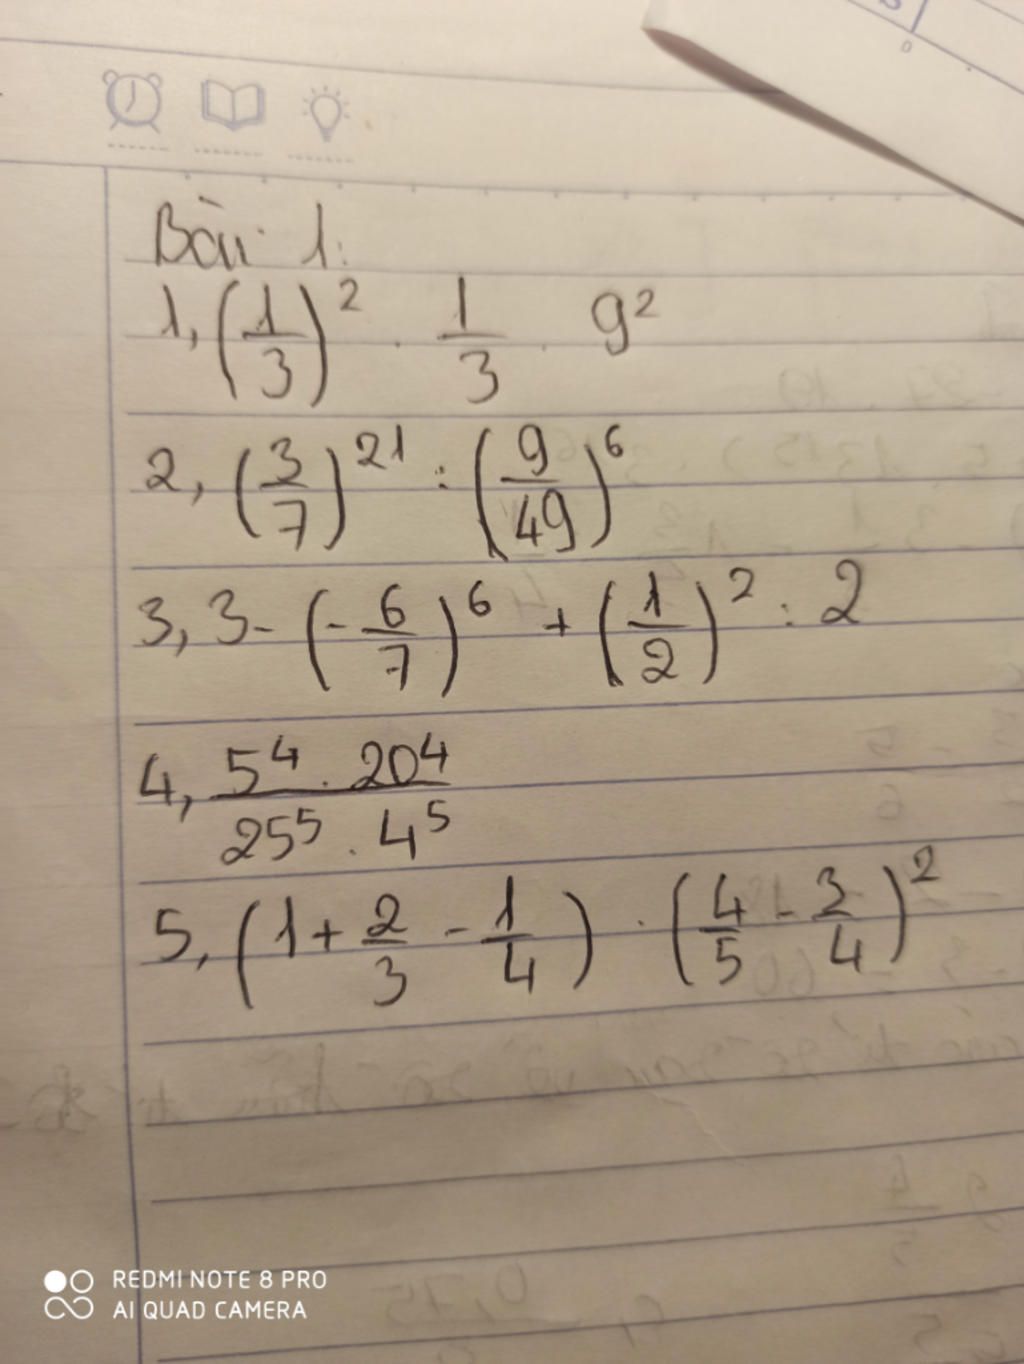 Bài 1:
1, (1/3)² . 1/3 . 9²
2, (3/7)²¹ : (9/49)⁶
3, 3 - (-6/7)⁶ + (1/2)² : 2
4, 5⁴ . 20⁴ / 25⁵ . 4⁵
5, (1 + 2/3 - 1/4) . (4/5 - 3/4)²
REDMI NOTE 8 PRO
AI QUAD CAMERA